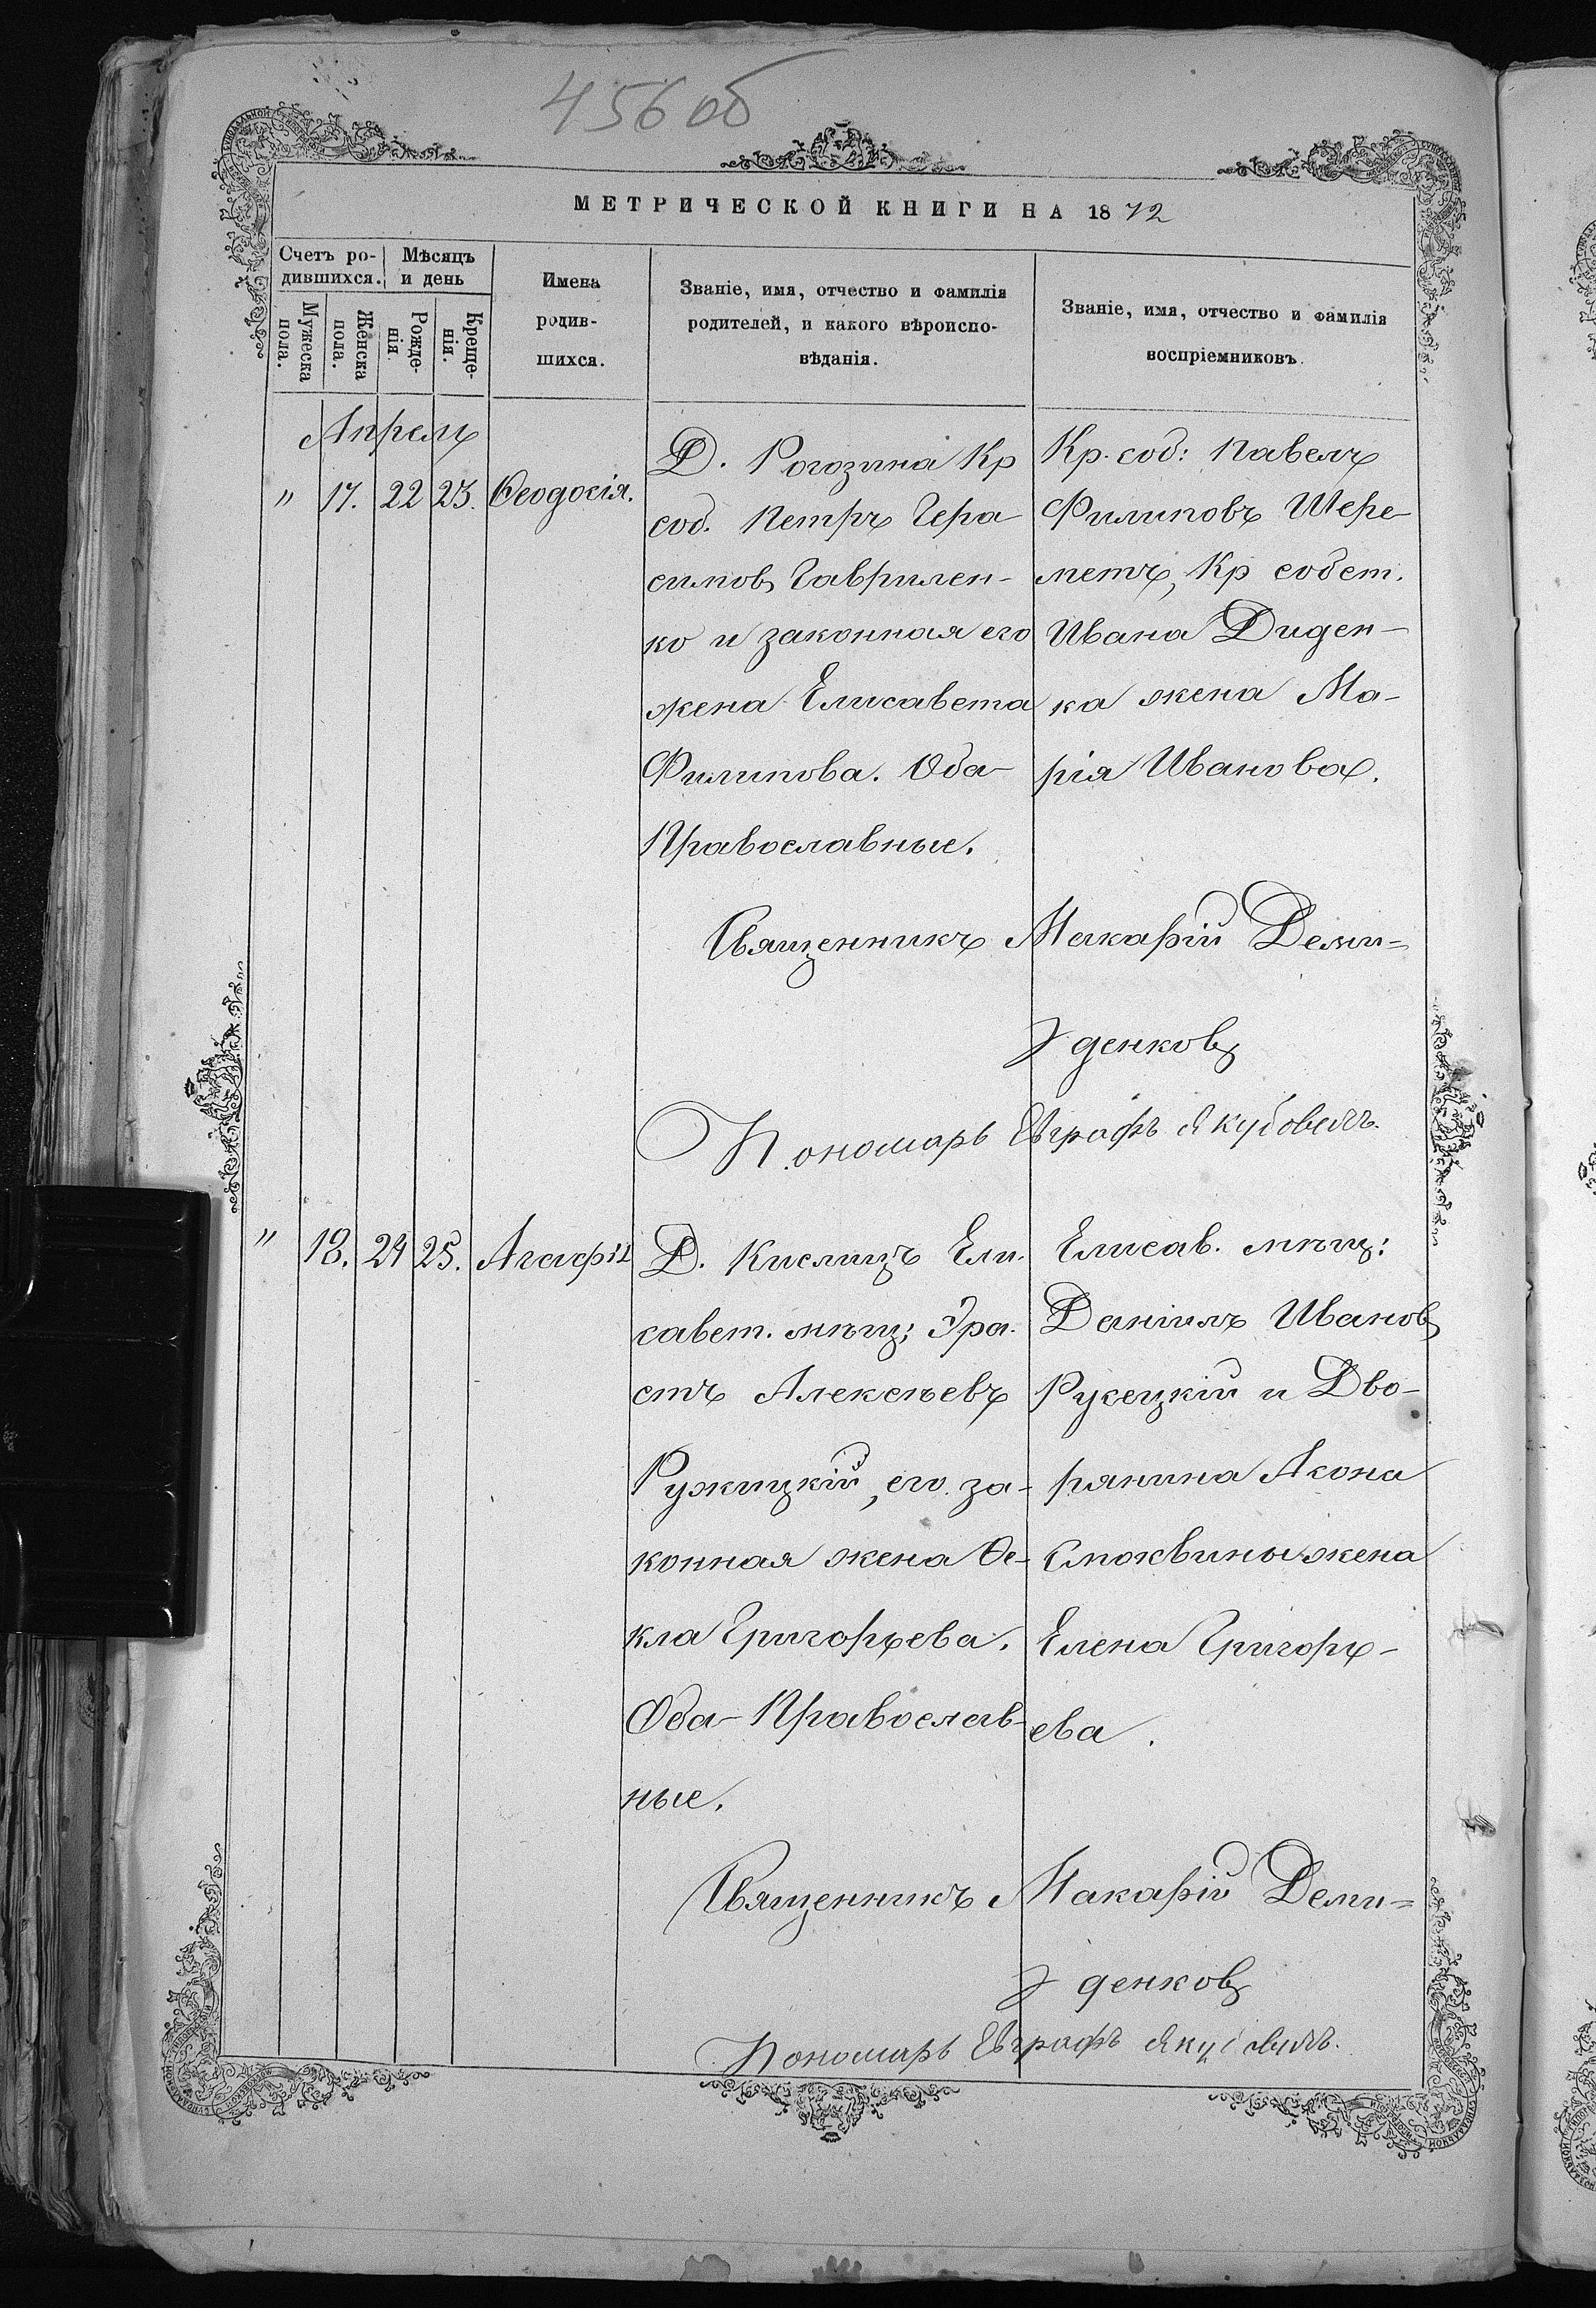 456 об
МЕТРИЧЕСКОЙ КНИГИ НА 1872
Счетъ ро-
дившихся.
Мужеска
пола.
Женска
пола.
Мѣсяцъ
и день
Рожде-
нія
Креще-
нія.
Имена
родив-
шихся.
Званіе, имя, отчество и фамилія
родителей, и какого вѣроиспо-
вѣданія.
Званіе, имя, отчество и фамилія
воспріемниковъ.
Апрель
" 17. 22 23. Ѳеодосія.
Д. Рогозина Кр
соб. Петръ Гера
симовъ Гаврилен-
ко и законная его
жена Елисавета
Филипова. Оба
Православные.
Кр. соб: Павелъ
Филиповъ Шере-
метъ, Кр собст.
Ивана Диден-
ка жена Ма-
рія Иванова.
Священникъ Макарій Деми=
денковъ
Пономарь Евграфъ
" 18. 24 25. Агафія
Д. Кислицъ Ели.
савет. мѣщ: Эра.
стъ Алексѣевъ
Ружицкій, его за-
конная жена Ѳе-
кла Григорьева.
Оба Православ-
ные.
Елисав. мѣщ:
Даніилъ Ивановъ
Русецкій и Дво-
рянина
жена
Елена Григорь-
ева.
Священникъ Макарій Деми=
денковъ
Пономарь Евграфъ